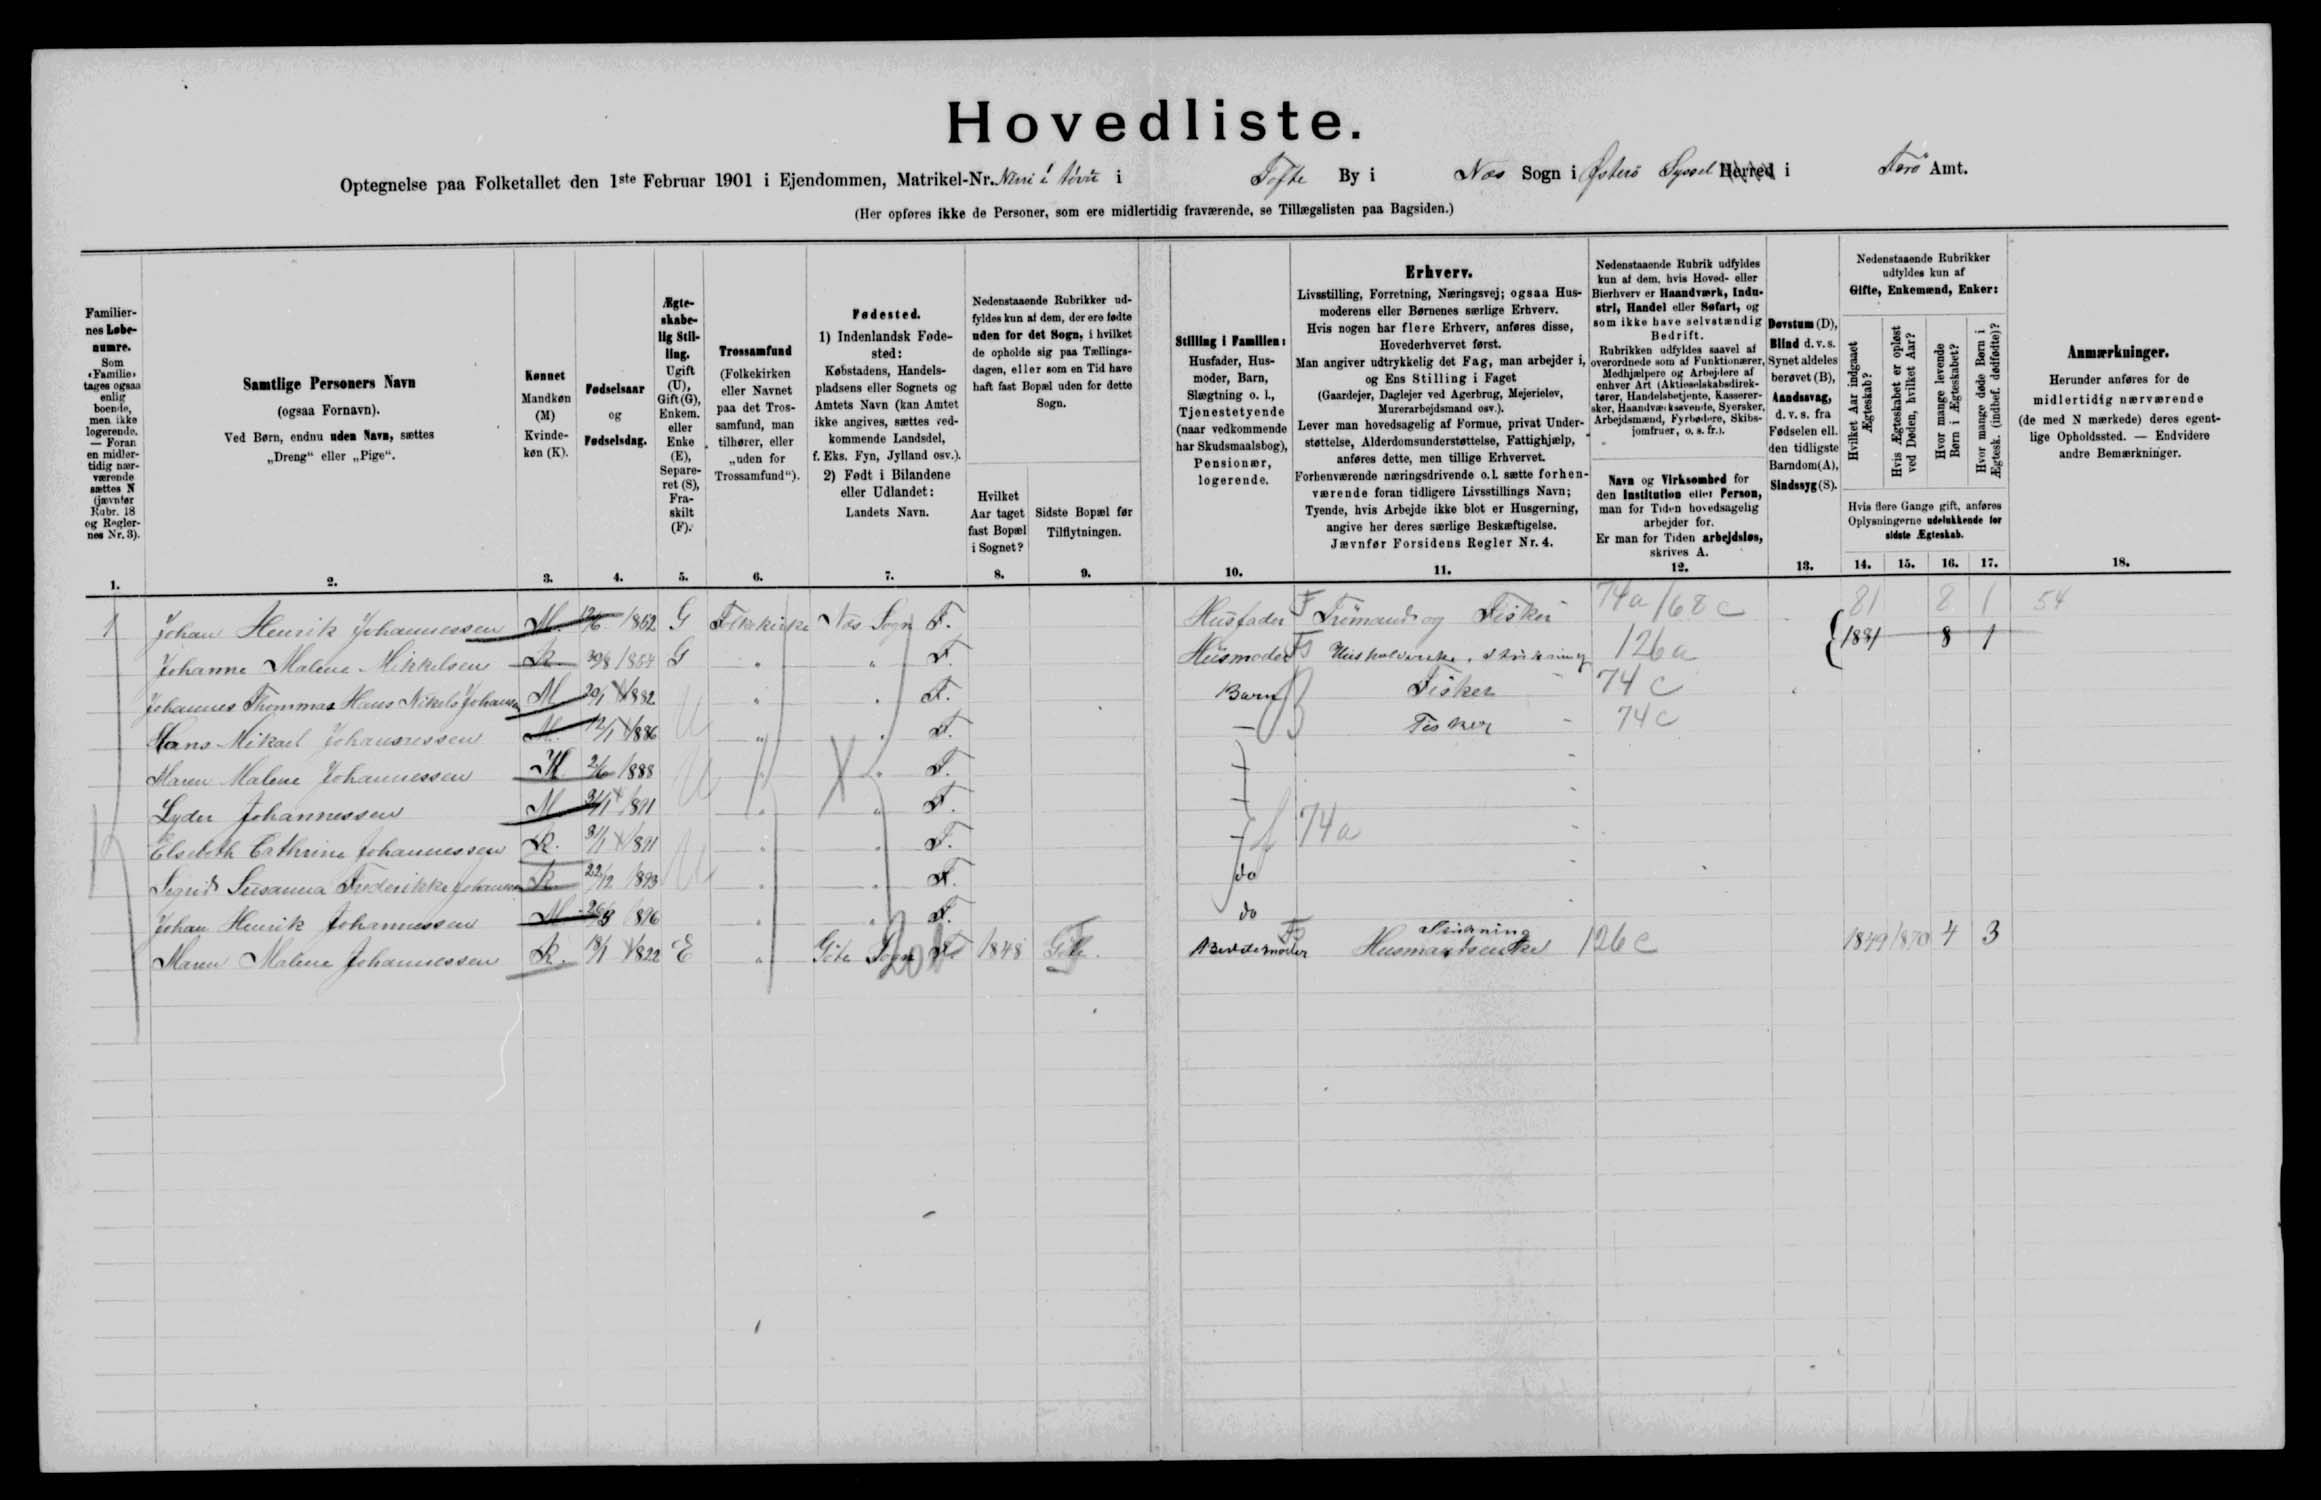 Hovedliste.
Optegnelse paa Folketallet den 1ste Februar 1901 i Ejendommen, Matrikel-Nr. i Tofte By i Næs Sogn i Østerö Syssel Herred i Færö Amt.
(Her opføres ikke de Personer, som ere midlertidig fraværende, se Tillægslisten paa Bagsiden.)
Familier-
nes Løbe-
numre.
Som
«Familie»
tages ogsaa
enlig
boende,
men ikke
logerende.
— Foran
en midler-
tidig nær-
værende
sættes N
(jævnfør
Rubr. 18
og Regler-
nes Nr. 3).
1.
Samtlige Personers Navn
(ogsaa Fornavn).
Ved Børn, endnu uden Navn, sættes
„Dreng“ eller „Pige“.
2.
Kønnet
Mandkøn
(M)
Kvinde-
køn (K).
3.
Fødselsaar
og
Fødselsdag.
4.
Ægte-
skabe-
lig Stil-
ling.
Ugift
(U),
Gift (G),
Enkem.
eller
Enke
(E),
Separe-
ret (S),
Fra-
skilt
(F).
5.
Trossamfund
(Folkekirken
eller Navnet
paa det Tros-
samfund, man
tilhører, eller
„uden for
Trossamfund“).
6.
Fødested.
1) Indenlandsk Føde-
sted:
Købstadens, Handels-
pladsens eller Sognets og
Amtets Navn (kan Amtet
ikke angives, sættes ved-
kommende Landsdel,
f. Eks. Fyn, Jylland osv.).
2) Født i Bilandene
eller Udlandet:
Landets Navn.
7.
Nedenstaaende Rubrikker ud-
fyldes kun af dem, der ere fødte
uden for det Sogn, i hvilket
de opholde sig paa Tællings-
dagen, eller som en Tid have
haft fast Bopæl uden for dette
Sogn.
Hvilket
Aar taget
fast Bopæl
i Sognet?
8.
Sidste Bopæl før
Tilflytningen.
9.
Stilling i Familien:
Husfader, Hus-
moder, Barn,
Slægtning o. l.,
Tjenestetyende
(naar vedkommende
har Skudsmaalsbog),
Pensionær,
logerende.
10.
Erhverv.
Livsstilling, Forretning, Næringsvej; ogsaa Hus-
moderens eller Børnenes særlige Erhverv.
Hvis nogen har flere Erhverv, anføres disse,
Hovederhvervet først.
Man angiver udtrykkelig det Fag, man arbejder i,
og Ens Stilling i Faget
(Gaardejer, Daglejer ved Agerbrug, Mejerielev,
Murerarbejdsmand osv.).
Lever man hovedsagelig af Formue, privat Under-
støttelse, Alderdomsunderstøttelse, Fattighjælp,
anføres dette, men tillige Erhvervet.
Forhenværende næringsdrivende o.l. sætte forhen-
værende foran tidligere Livsstillings Navn;
Tyende, hvis Arbejde ikke blot er Husgerning,
angive her deres særlige Beskæftigelse.
Jævnfør Forsidens Regler Nr. 4.
11.
Nedenstaaende Rubrik udfyldes
kun af dem, hvis Hoved- eller
Bierhverv er Haandværk, Indu-
stri, Handel eller Søfart, og
som ikke have selvstændig
Bedrift.
Rubrikken udfyldes saavel af
overordnede som af Funktionærer,
Medhjælpere og Arbejdere af
enhver Art (Aktieselskabsdirek-
tører, Handelsbetjente, Kasserer-
sker, Haandværkssvende, Syersker,
Arbejdsmænd, Fyrbødere, Skibs-
jomfruer, o. s. fr.).
Navn og Virksomhed for
den Institution eller Person,
man for Tiden hovedsagelig
arbejder for.
Er man for Tiden arbejdsløs,
skrives A.
12.
Døvstum (D),
Blind d. v. s.
Synet aldeles
berøvet (B),
Aandssvag,
d. v. s. fra
Fødselen ell.
den tidligste
Barndom (A),
Sindssyg (S).
13.
Nedenstaaende Rubrikker
udfyldes kun af
Gifte, Enkemænd, Enker:
Hvilket Aar indgaaet
Ægteskab?
Hvis Ægteskabet er opløst
ved Døden, hvilket Aar?
Hvor mange levende
Børn i Ægteskabet?
Hvor mange døde Børn i
Ægtesk. (indbef. dødfødte)?
Hvis flere Gange gift, anføres
Oplysningerne udelukkende for
sidste Ægteskab.
14. 15. 16. 17.
Anmærkninger.
Herunder anføres for de
midlertidig nærværende
(de med N mærkede) deres egent-
lige Opholdssted. — Endvidere
andre Bemærkninger.
18.
1 Johan Henrik Johannessen M. 12/6 1852 G Folkekirke Næs Sogn F. Husfader F Trömand og Fisker 74a/68c 81 8 1 54
Johanne Malene Mikkelsen K 30/8 1854 G " " F. Husmoder 126a 1881 8 1
Johannes Thommas Hans Nikels M 20/1 1882 " " F. Barn Fisker 74c
Hans Mikael Johannessen M. 12/1 1886 U " " F. — Fisker 74c
Maren Malene Johannessen K 2/6 1888 " " F. —
Lyder Johannessen M 31/1 1891 " " F. —
Elsebeth Cathrine Johannessen K. 31/1 1891 " " F. — 74a
Sigrid Susanna Frederikke K. 22/12 1893 " " F. do
Johan Henrik Johannessen M 1896 " " F. do
Maren Malene Johannessen K. 18/1 1822 E " Göte Sogn F. 1848 Göte. Beddemoder Husmandsenke 126c 1849 1870 4 3